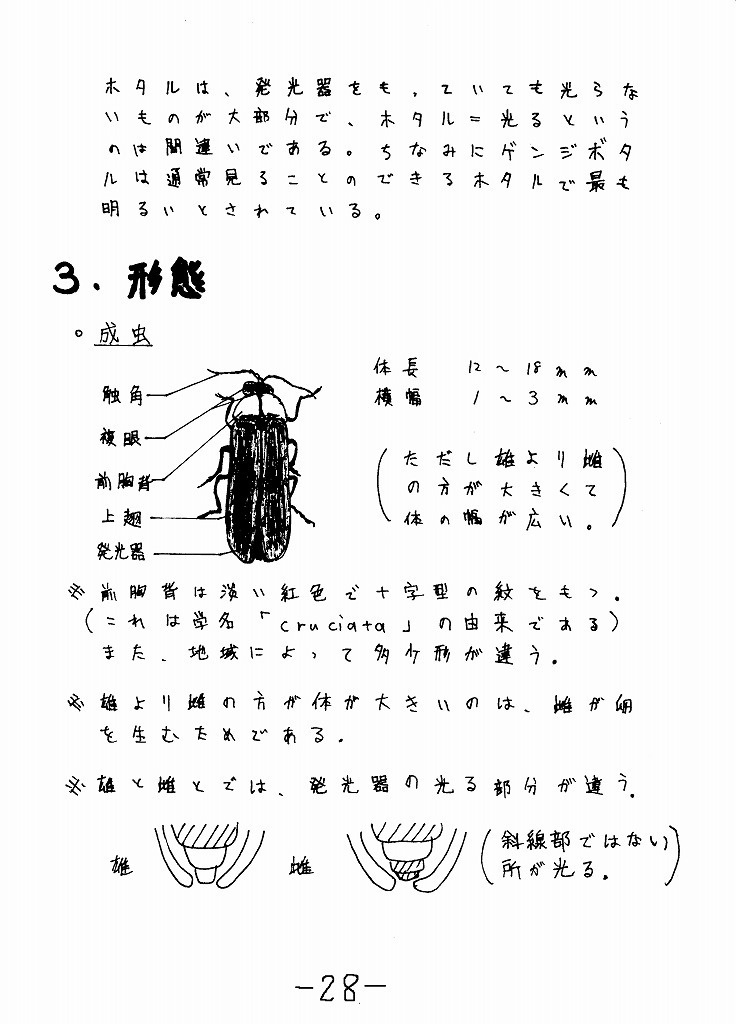 ホタルは、発光器をもっていても光らな
いものが大部分で、ホタル=光るという
のは間違いである。ちなみにゲンジボタ
ルは通常見ることのできるホタルで最も
明るいとされている。
3. 形態
○ 成虫
触角
複眼
前胸背
上翅
発光器
体長 12～18mm
横幅 1～3mm
(ただし雄より雌
の方が大きくて
体の幅が広い。)
※ 前胸背は淡い紅色で十字型の紋をもつ。
(これは学名「cruciata」の由来である)
また、地域によって多少形が違う。
※ 雄より雌の方が体が大きいのは、雌が卵
を生むためである。
※ 雄と雌とでは、発光器の光る部分が違う。
雄
雌
(斜線部ではない
所が光る。)
-28-